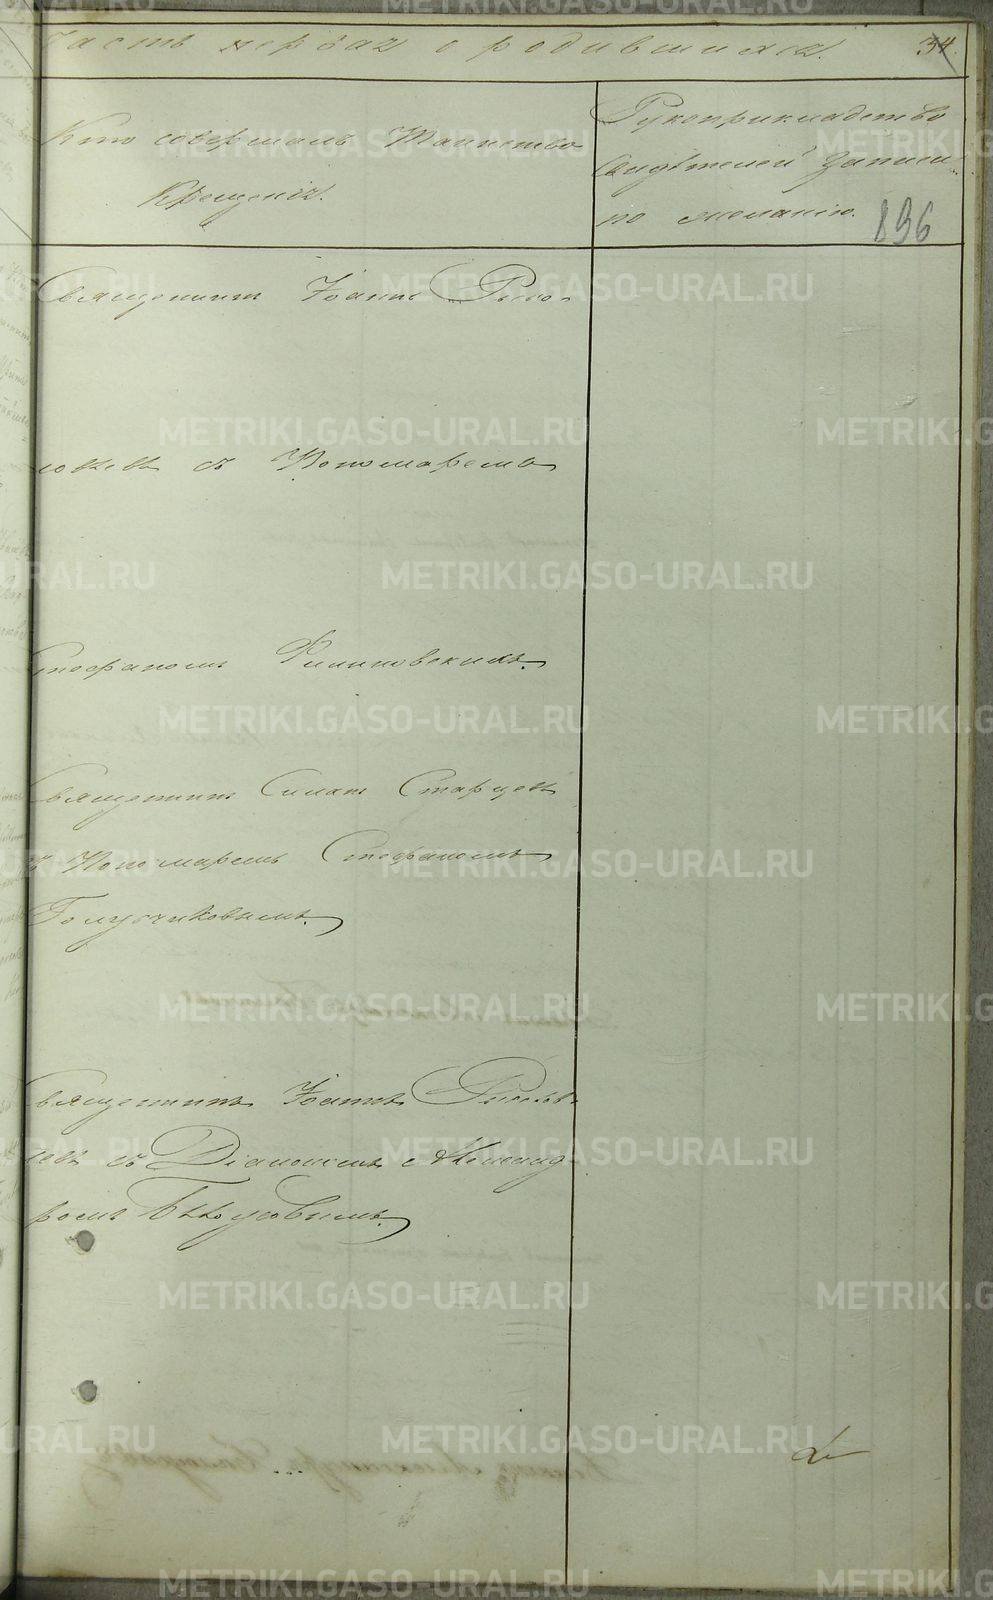 Часть первая о родившихся.
34.
Кто совершалъ Таинство
Крещенія.
Рукоприкладство
свидѣтелей записи
по желанію.
896
Священникъ Іоаннъ
съ Пономаремъ
Стефаномъ Филиповскихъ.
Священникъ Симонъ Старцевъ
съ Пономаремъ Стефаномъ
Голубчиковымъ.
Священникъ Іоаннъ
съ Діакономъ Александ
ромъ
METRIKI.GASO-URAL.RU